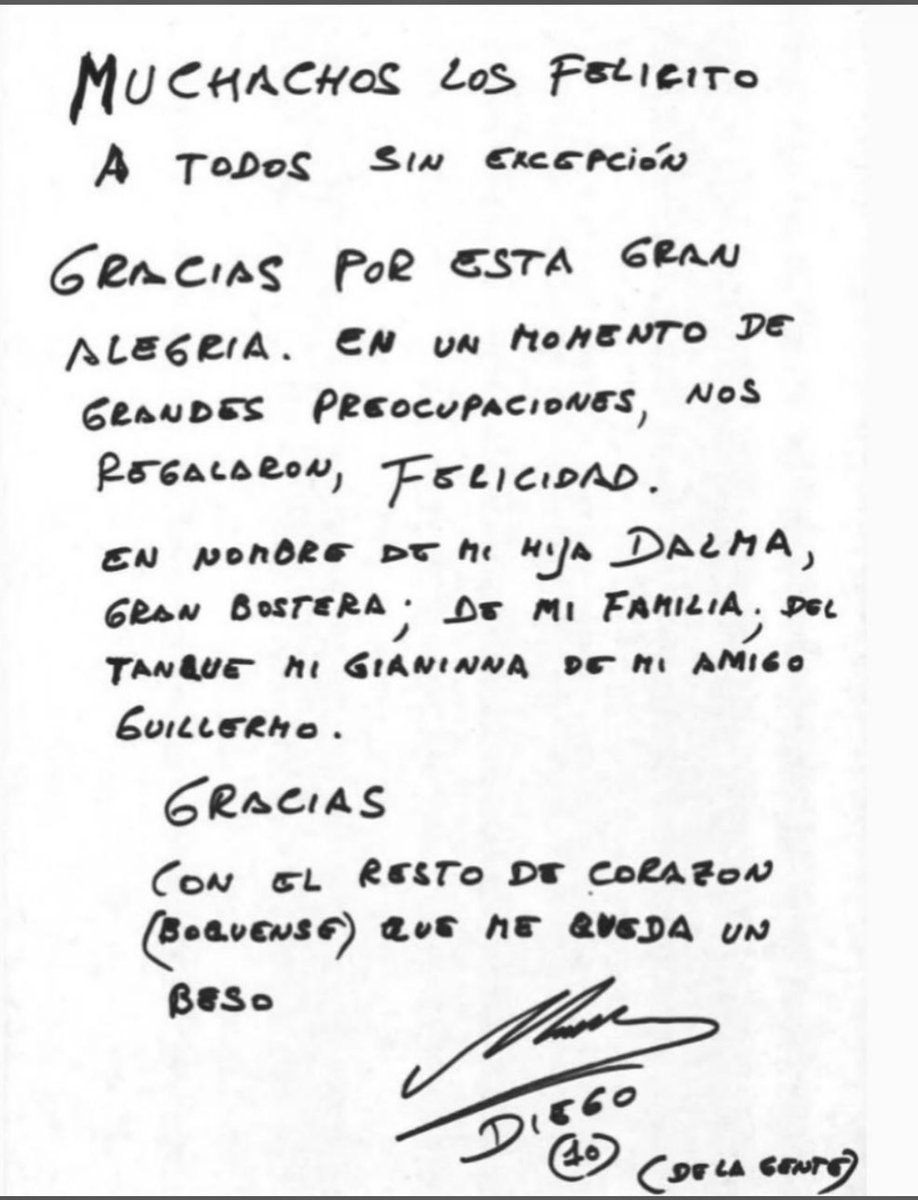 MUCHACHOS LOS FELICITO
A TODOS SIN EXCEPCIÓN
GRACIAS POR ESTA GRAN
ALEGRIA. EN UN MOMENTO DE
GRANDES PREOCUPACIONES, NOS
REGALARON, FELICIDAD.
EN NOMBRE DE MI HIJA DALMA,
GRAN BOSTERA; DE MI FAMILIA; DEL
TANQUE MI GIANINNA DE MI AMIGO
GUILLERMO.
GRACIAS
CON EL RESTO DE CORAZON
(BOQUENSE) QUE ME QUEDA UN
BESO
DIEGO
(10)
(DE LA GENTE)